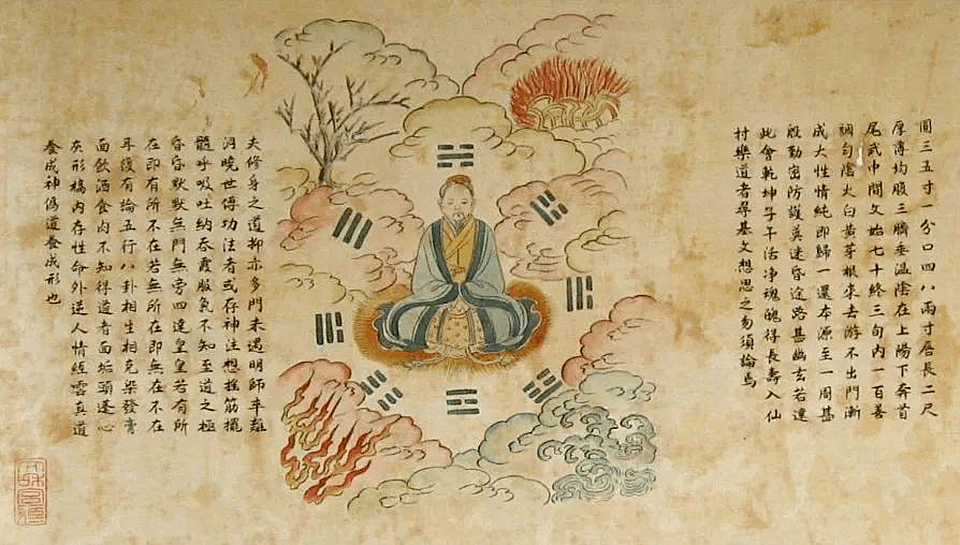 圓三五寸一分口四八兩寸唇長二尺
厚薄均腹三臍垂溫陰在上陽下奔首
尾武中間文始七十終三旬內一百善
調勻陰火白黃芽根來去游不出門漸
成大性情純却歸一還本源至一周甚
殷勤密防護莫迷昏途路甚幽玄若達
此會乾坤子午活净魂魄得長壽入仙
村樂道者尋其文想思之勿須論焉
夫修身之道抑亦多門未遇明師卒難
洞曉世傳功法者或存神注想捻筋擺
髓呼吸吐納吞霞服氣不知至道之極
昏昏默默無門無旁四達皇皇若有所
在即有所不在若無所在即無在不在
耳復有論五行八卦相生相克染發膏
面飲酒食肉不知得道者面垢頭蓬心
灰形槁內存性命外逆人情經雲真道
養成神偽道養成形也